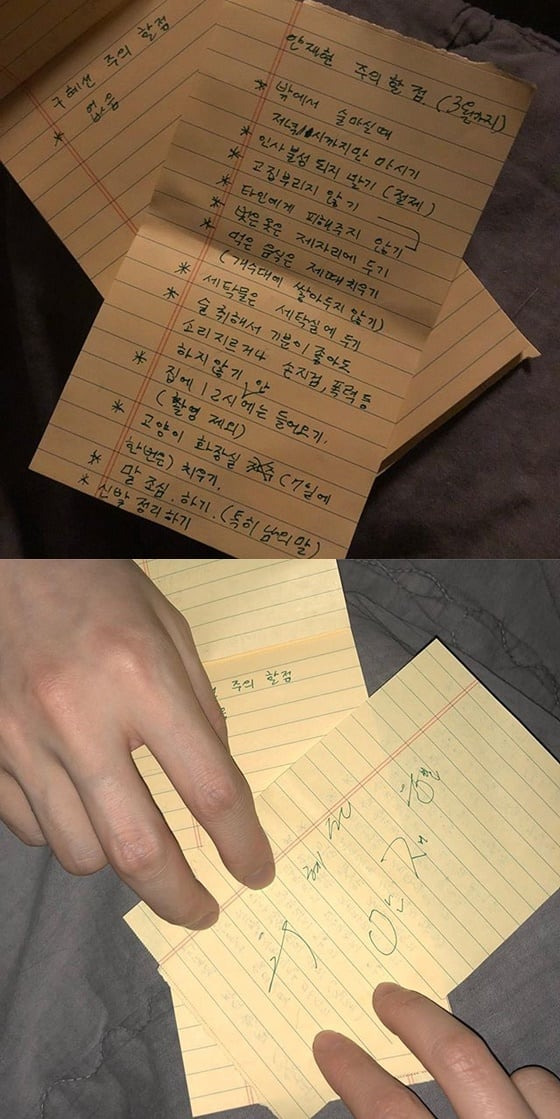 구혜선 주의 할점
* 없음
안재현 주의 할점 (3월까지)
* 밖에서 술마실때
저녁 시까지만 마시기
* 인사불성 되지 말기 (절제)
* 고집부리지 않기
* 타인에게 피해주지 않기
* 벗은 옷은 제자리에 두기
* 먹은 음식은 제때 치우기
(개수대에 쌓아두지 않기)
* 세탁물은 세탁실에 두기
* 술 취해서 기분이 좋아도
소리지르거나 손지검, 폭력 등
하지 않기
* 집에 12시 안에는 들어오기.
(촬영 제외)
* 고양이 화장실 (7일에
한번은) 치우기.
* 말 조심. 하기. (특히 남의 말)
* 신발 정리하기
주의 할점
구혜선
안재현